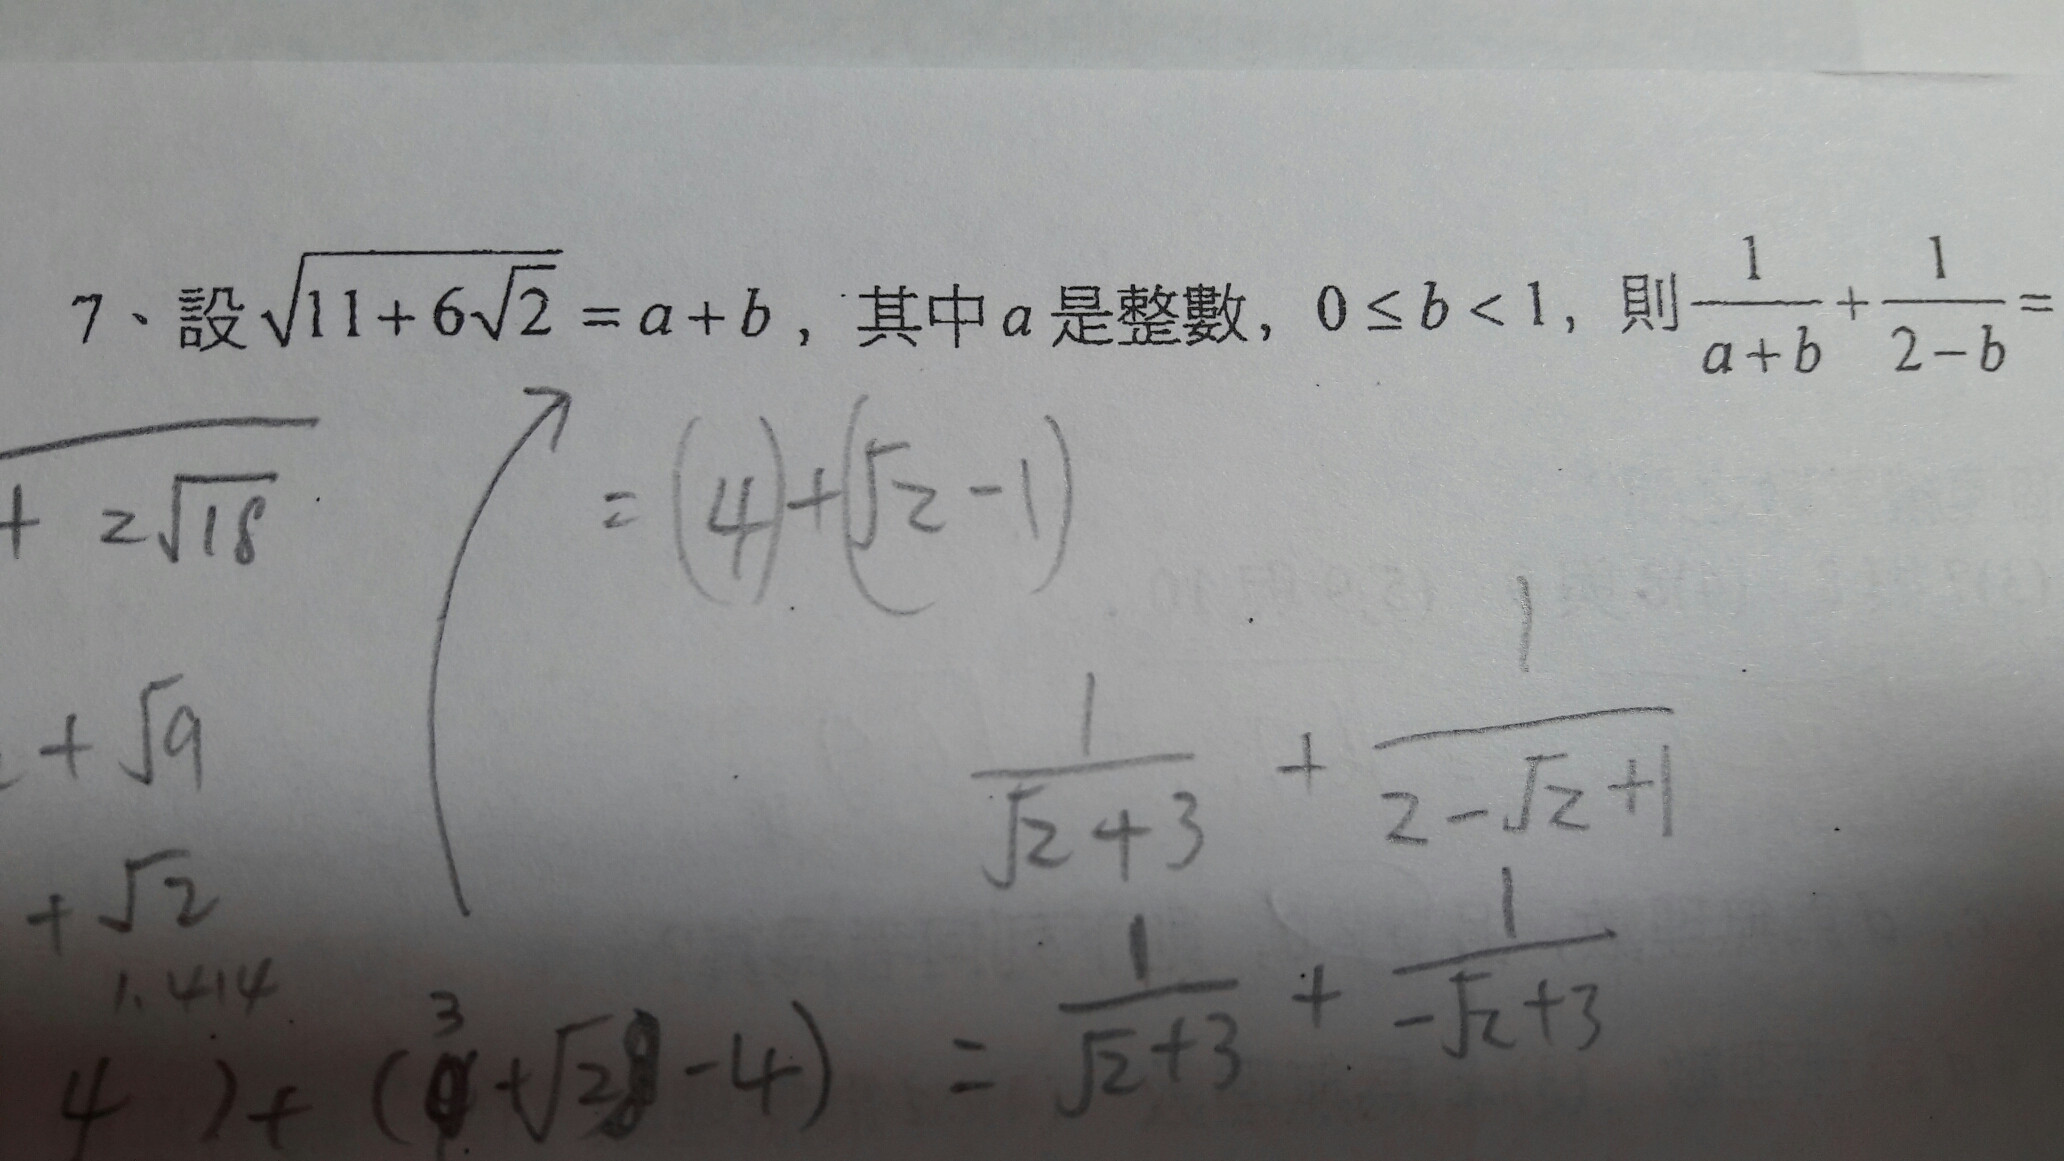 7、設√(11+6√2) = a+b，其中a是整數，0≤b<1，則 1/(a+b) + 1/(2-b) =
+ 2√18
= (4)+(√2-1)
+√9
1/(√2+3) + 1/(2-√2+1)
+√2
1.414
4 )+(3+√2-4)
= 1/(√2+3) + 1/(-√2+3)